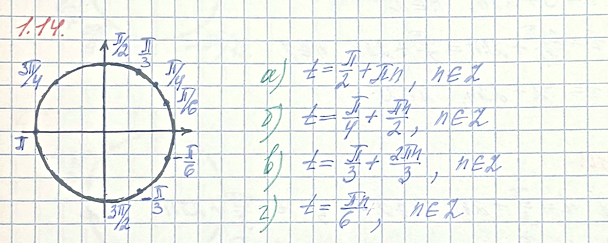 1.14.
π/2 π/3
3π/4 π/4
π/6
π
-π/6
3π/2 -π/3
а) t = π/2 + πn, n∈Z
б) t = π/4 + πn/2, n∈Z
в) t = π/3 + 2πn/3, n∈Z
г) t = πn/6, n∈Z